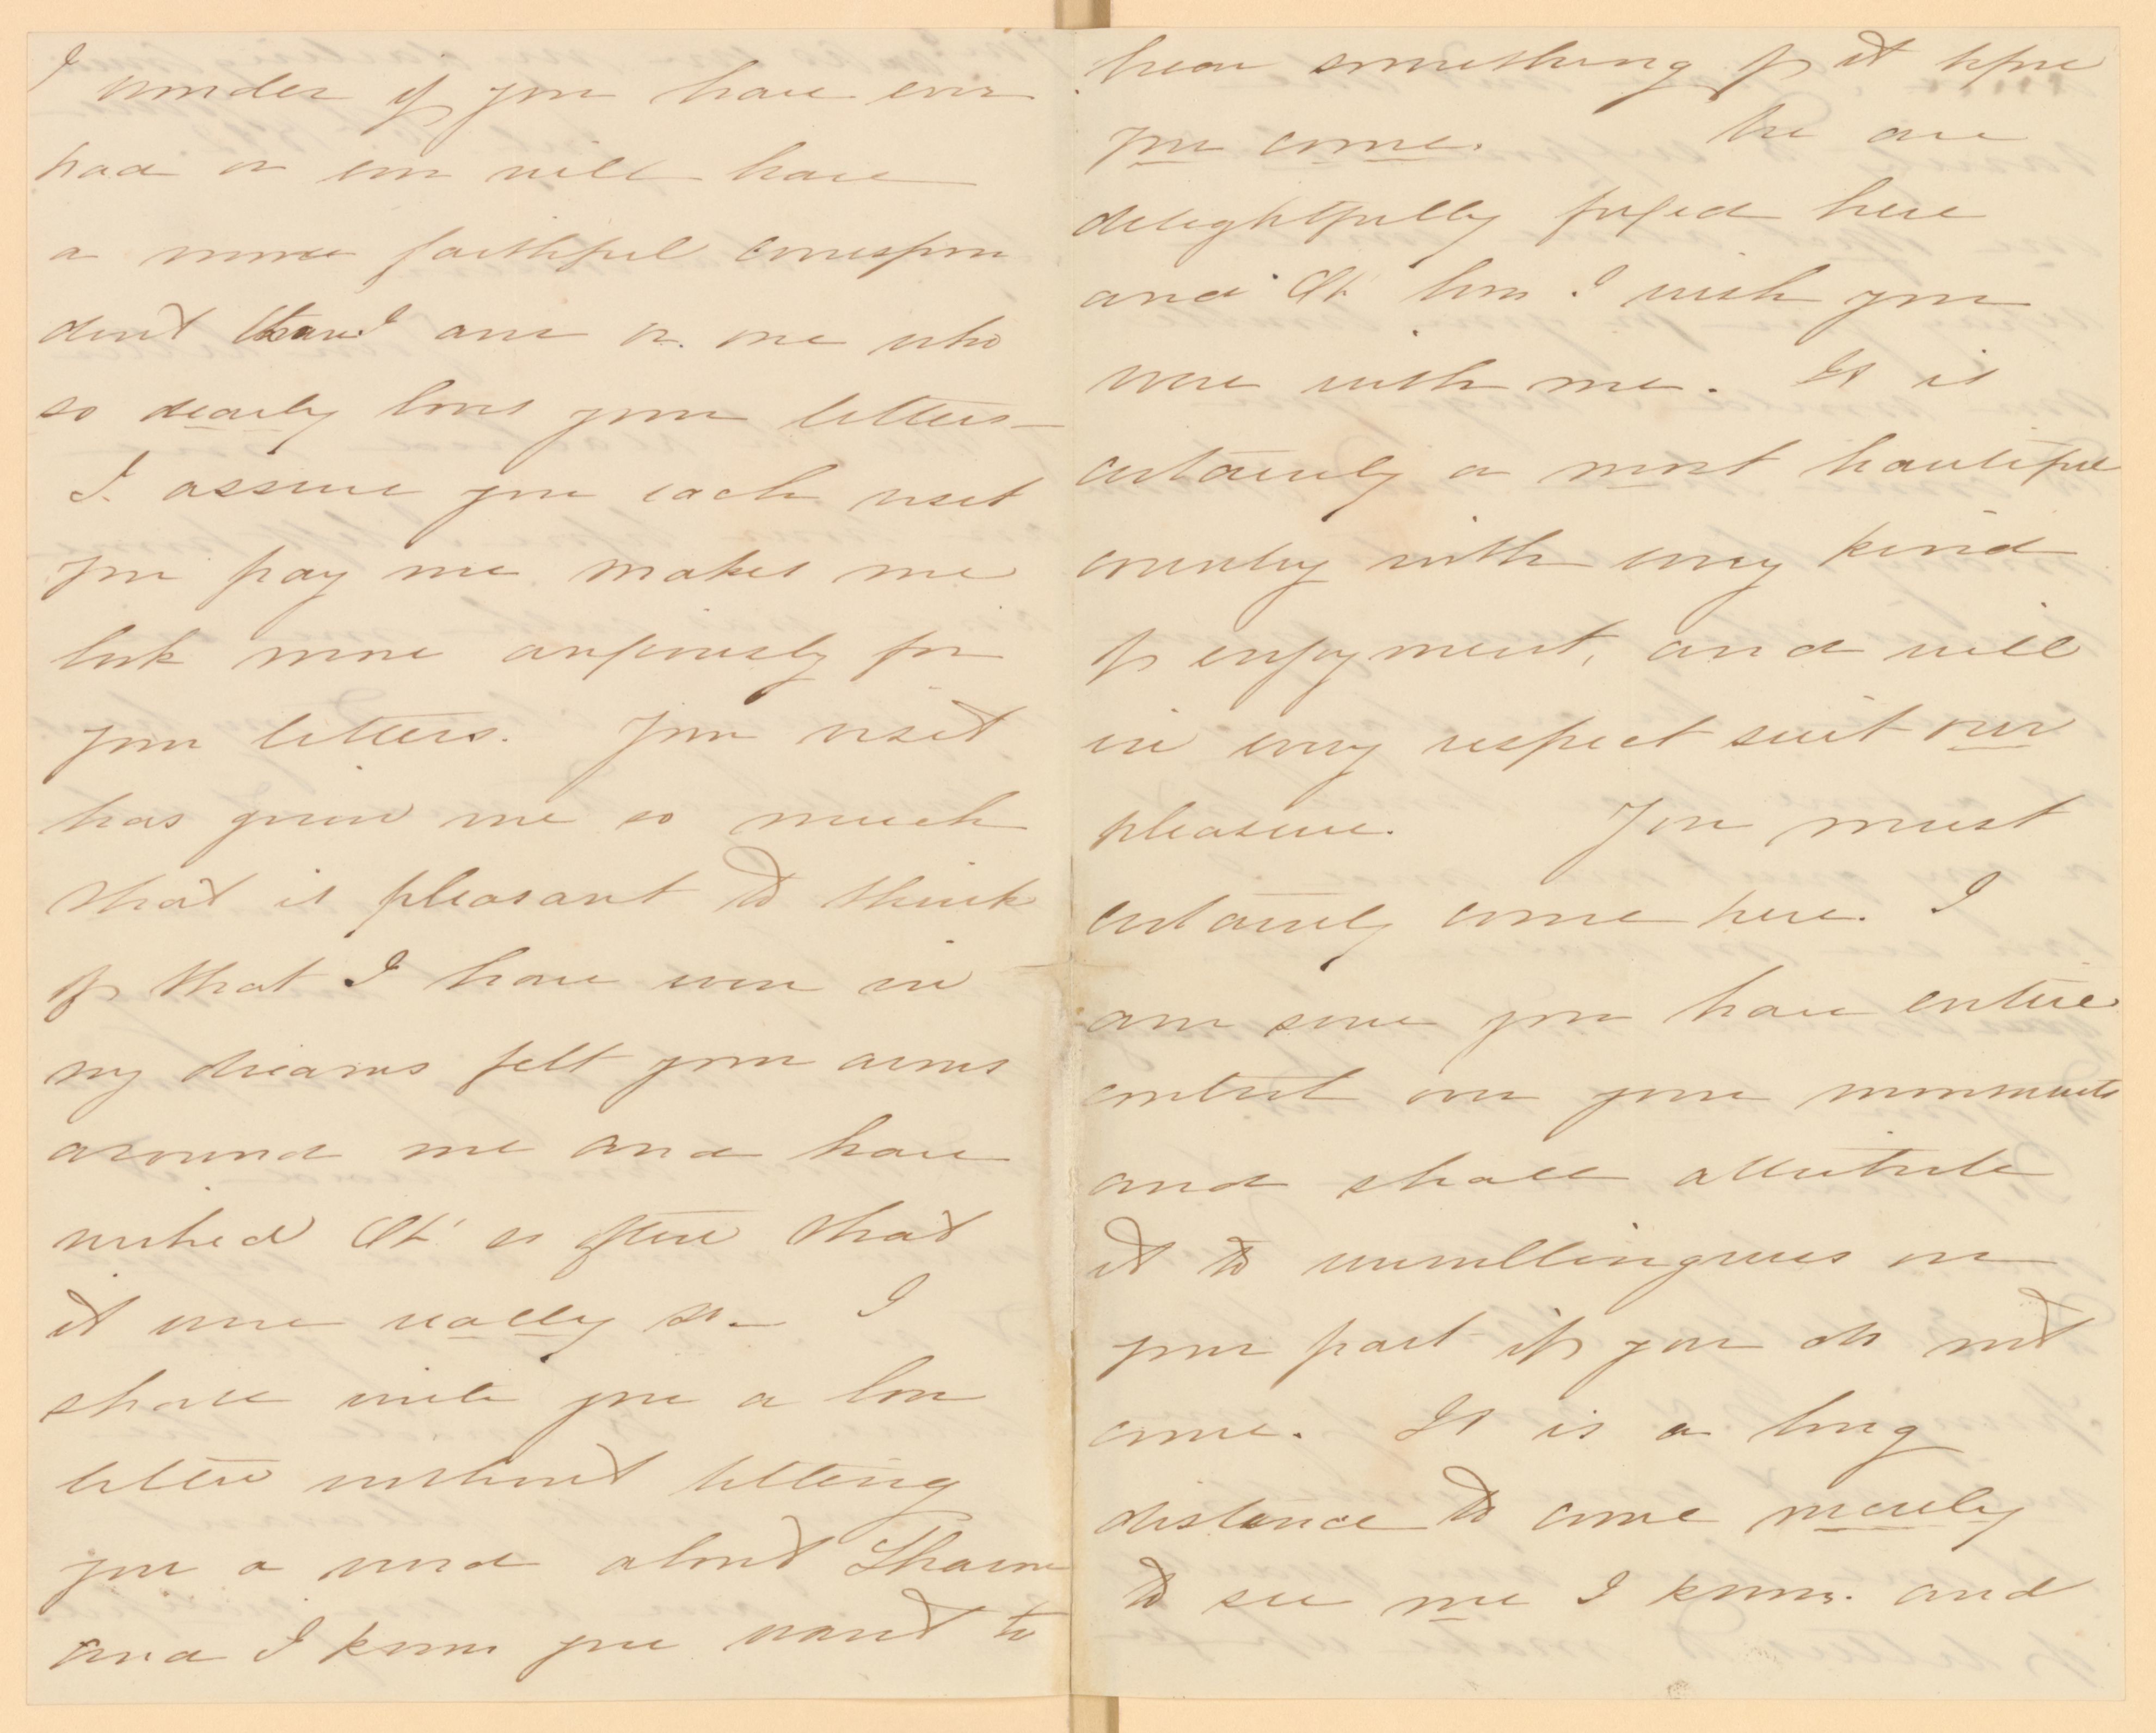 I wonder if you have ever
had or ever will have
a more faithful correspon
dent than I am or one who
so dearly loves your letters—
I assure you each visit
you pay me makes me
look more anxiously for
your letters. Your visit
has given me so much
that is pleasant to think
of that I have even in
my dreams felt your arms
around me and have
wished Oh! so often that
it were really so— I
shall write you a love
letter without telling
you a word about Sharon
and I know you want to
hear something of it before
you come. We are
delightfully fixed here
and Oh! how I wish you
were with me. It is
certainly a most beautiful
country with every kind
of enjoyment, and will
in every respect suit our
pleasure. You must
certainly come here. I
am sure you have entire
control over your movements
and shall attribute
it to unwillingness on
your part if you do not
come. It is a long
distance to come merely
to see me I know. and